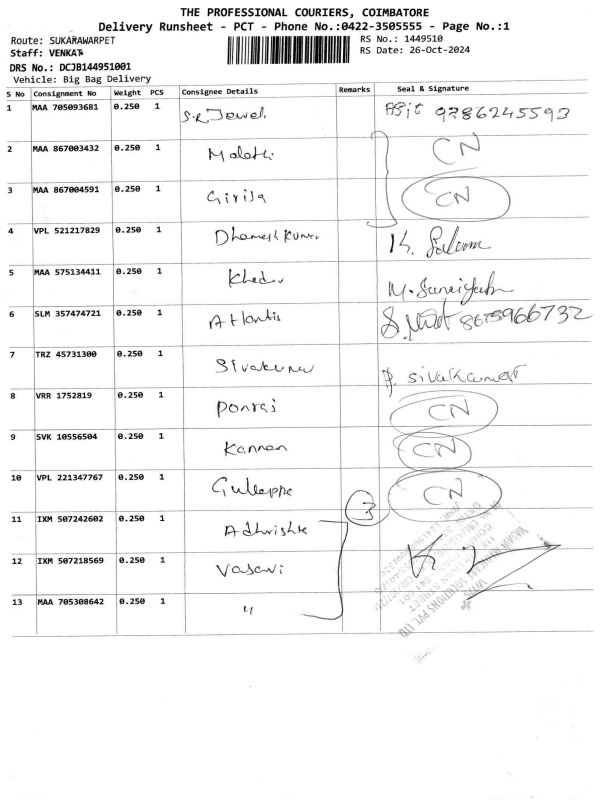 THE PROFESSIONAL COURIERS, COIMBATORE
Delivery Runsheet - PCT - Phone No.:0422-3505555 - Page No.:1
Route: SUKARAWARPET
RS No.: 1449510
Staff: VENKAT
RS Date: 26-Oct-2024
DRS No.: DCJB144951001
Vehicle: Big Bag Delivery
S No Consignment No Weight PCS Consignee Details Remarks Seal & Signature
1 MAA 705093681 0.250 1 S.R. Jewel 9786245593
2 MAA 867003432 0.250 1 Malathi CN
3 MAA 867004591 0.250 1 Girija CN
4 VPL 521217829 0.250 1 Dhamesh Kumar K.
5 MAA 575134411 0.250 1 M.
6 SLM 357474721 0.250 1 Atlantis
7 TRZ 45731300 0.250 1 Sivakumar P. Sivakumar
8 VRR 1752819 0.250 1 Ponraj CN
9 SVK 10556504 0.250 1 Kannan CN
10 VPL 221347767 0.250 1 CN
3
11 IXM 507242602 0.250 1
12 IXM 507218569 0.250 1 Vasavi
13 MAA 705308642 0.250 1 "